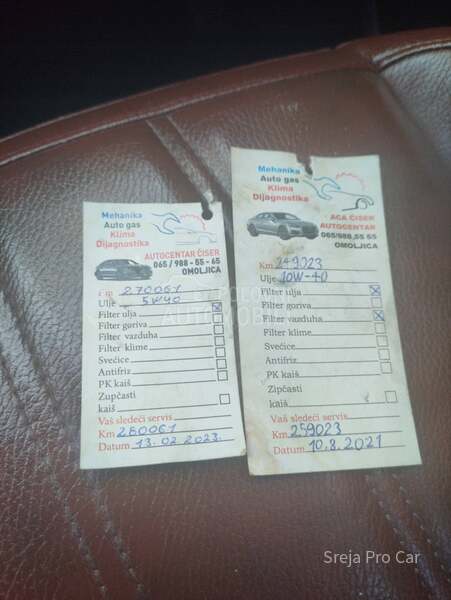 Mehanika
Auto gas
Klima
Dijagnostika
AUTOCENTAR ĆISER
065 / 988 - 55 - 65
OMOLJICA
Km 270061
Ulje 5W40
Filter ulja
Filter goriva
Filter vazduha
Filter klime
Svećice
Antifriz
PK kaiš
Zupčasti
kaiš
Vaš sledeći servis
Km 280061
Datum 13.02.2023.
Mehanika
Auto gas
Klima
Dijagnostika
ACA ĆISER
AUTOCENTAR
065/988 55 65
OMOLJICA
Km 249023
Ulje 10W-40
Filter ulja
Filter goriva
Filter vazduha
Filter klime
Svećice
Antifriz
PK kaiš
Zipčasti
kaiš
Vaš sledeći servis
Km 259023
Datum 10.8.2021
Sreja Pro Car